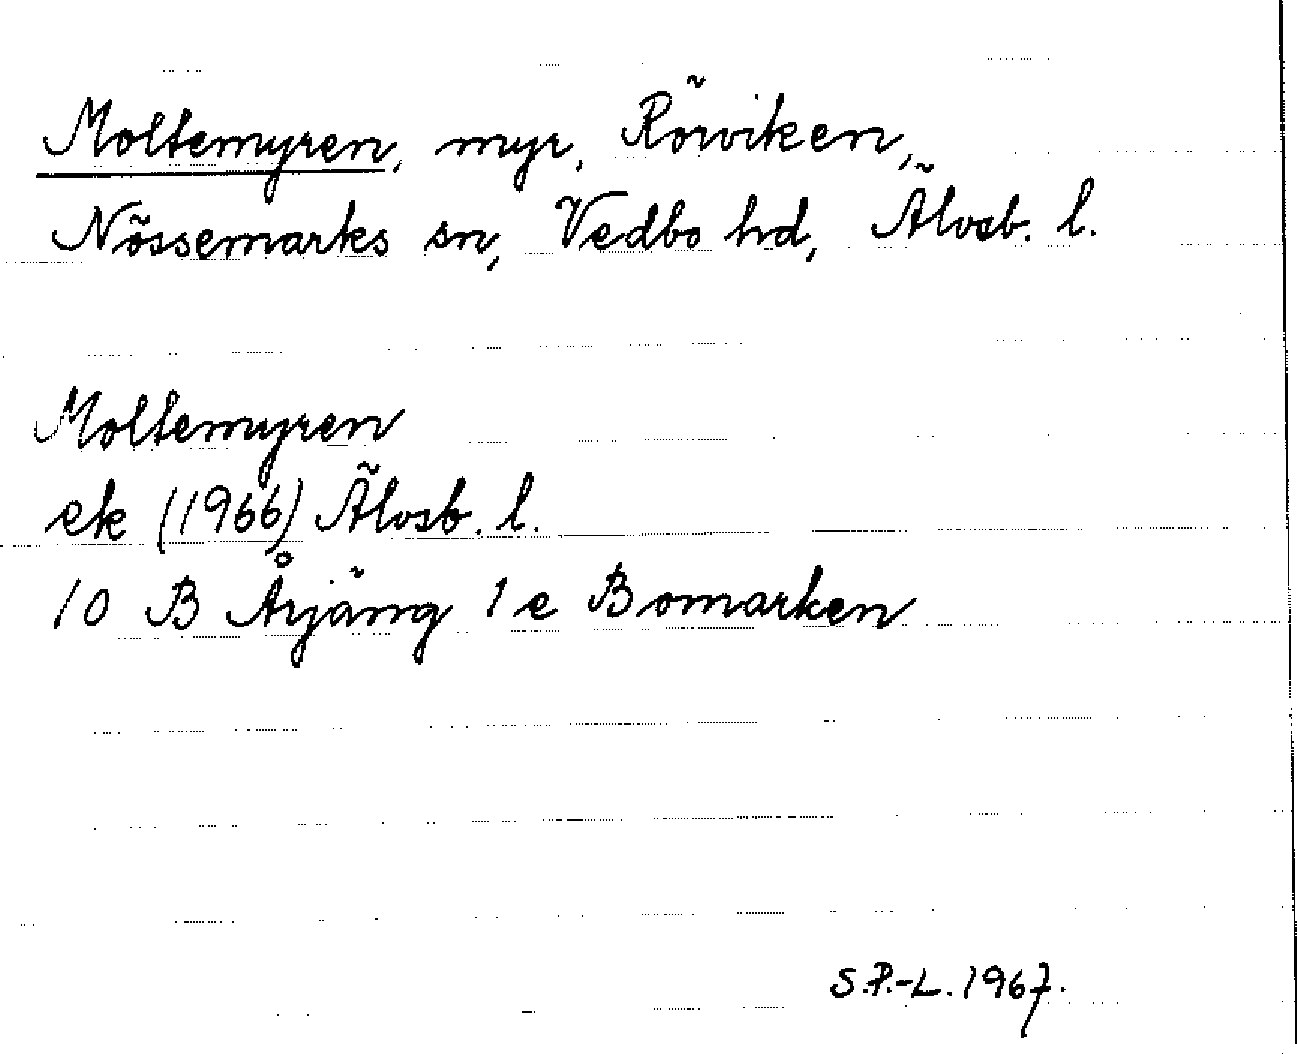 Moltemyren, myr, Rörviken,
Nössemarks sn, Vedbo hd, Älvsb. l.
Moltemyren
ek (1966) Älvsb. l.
10 B Årjäng 1 e Bomarken
S.P.-L. 1967.